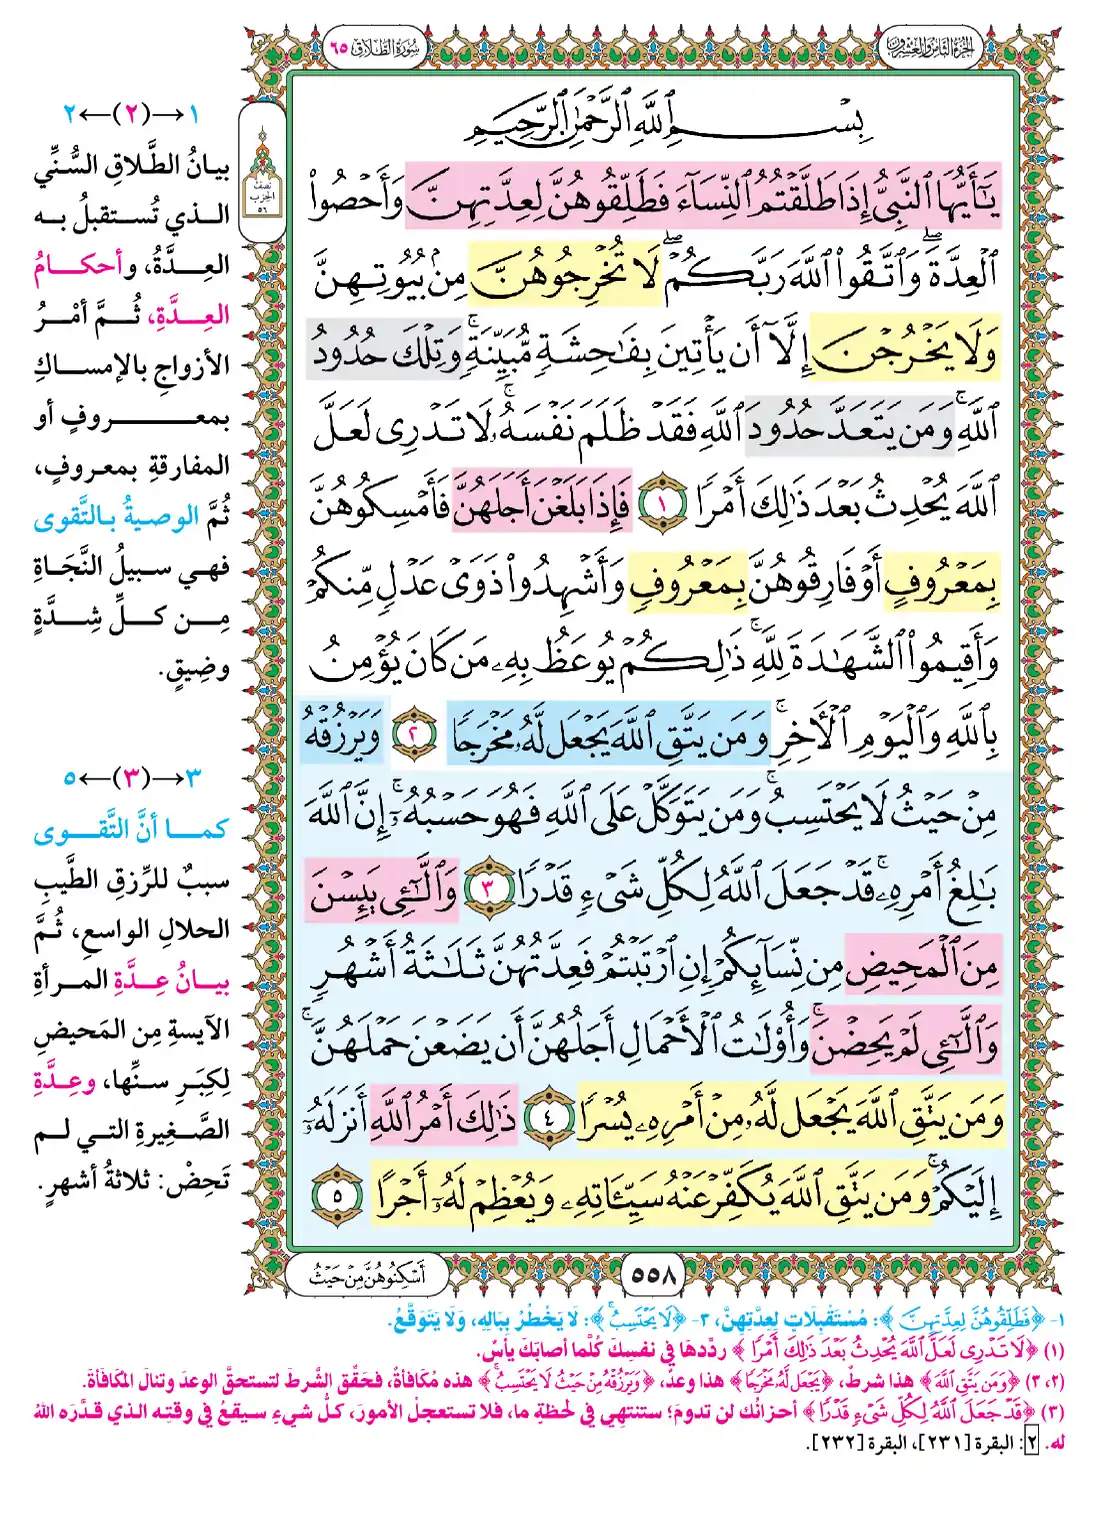 سُورَةُ الطَّلَاقِ ٦٥
الجزء الثامن والعشرون
بِسْمِ ٱللَّهِ ٱلرَّحْمَٰنِ ٱلرَّحِيمِ
يَٰٓأَيُّهَا ٱلنَّبِىُّ إِذَا طَلَّقْتُمُ ٱلنِّسَآءَ فَطَلِّقُوهُنَّ لِعِدَّتِهِنَّ وَأَحْصُوا۟
ٱلْعِدَّةَ ۖ وَٱتَّقُوا۟ ٱللَّهَ رَبَّكُمْ ۖ لَا تُخْرِجُوهُنَّ مِنۢ بُيُوتِهِنَّ
وَلَا يَخْرُجْنَ إِلَّآ أَن يَأْتِينَ بِفَٰحِشَةٍ مُّبَيِّنَةٍ ۚ وَتِلْكَ حُدُودُ
ٱللَّهِ ۚ وَمَن يَتَعَدَّ حُدُودَ ٱللَّهِ فَقَدْ ظَلَمَ نَفْسَهُۥ ۚ لَا تَدْرِى لَعَلَّ
ٱللَّهَ يُحْدِثُ بَعْدَ ذَٰلِكَ أَمْرًا ١ فَإِذَا بَلَغْنَ أَجَلَهُنَّ فَأَمْسِكُوهُنَّ
بِمَعْرُوفٍ أَوْ فَارِقُوهُنَّ بِمَعْرُوفٍ وَأَشْهِدُوا۟ ذَوَىْ عَدْلٍ مِّنكُمْ
وَأَقِيمُوا۟ ٱلشَّهَٰدَةَ لِلَّهِ ۚ ذَٰلِكُمْ يُوعَظُ بِهِۦ مَن كَانَ يُؤْمِنُ
بِٱللَّهِ وَٱلْيَوْمِ ٱلْءَاخِرِ ۚ وَمَن يَتَّقِ ٱللَّهَ يَجْعَل لَّهُۥ مَخْرَجًا ٢ وَيَرْزُقْهُ
مِنْ حَيْثُ لَا يَحْتَسِبُ ۚ وَمَن يَتَوَكَّلْ عَلَى ٱللَّهِ فَهُوَ حَسْبُهُۥٓ ۚ إِنَّ ٱللَّهَ
بَٰلِغُ أَمْرِهِۦ ۚ قَدْ جَعَلَ ٱللَّهُ لِكُلِّ شَىْءٍ قَدْرًا ٣ وَٱلَّٰٓـِٔى يَئِسْنَ
مِنَ ٱلْمَحِيضِ مِن نِّسَآئِكُمْ إِنِ ٱرْتَبْتُمْ فَعِدَّتُهُنَّ ثَلَٰثَةُ أَشْهُرٍ
وَٱلَّٰٓـِٔى لَمْ يَحِضْنَ ۚ وَأُو۟لَٰتُ ٱلْأَحْمَالِ أَجَلُهُنَّ أَن يَضَعْنَ حَمْلَهُنَّ ۚ
وَمَن يَتَّقِ ٱللَّهَ يَجْعَل لَّهُۥ مِنْ أَمْرِهِۦ يُسْرًا ٤ ذَٰلِكَ أَمْرُ ٱللَّهِ أَنزَلَهُۥٓ
إِلَيْكُمْ ۚ وَمَن يَتَّقِ ٱللَّهَ يُكَفِّرْ عَنْهُ سَيِّـَٔاتِهِۦ وَيُعْظِمْ لَهُۥٓ أَجْرًا ٥
نصف
الحزب
٥٦
١→(٢)←٢
بيانُ الطَّلاقِ السُّنِّي
الذي تُستقبلُ به
العِدَّةُ، وأحكامُ
العِدَّةِ، ثُمَّ أمْرُ
الأزواجِ بالإمساكِ
بمعروفٍ أو
المفارقةِ بمعروفٍ،
ثُمَّ الوصيةُ بالتَّقوى
فهي سبيلُ النَّجَاةِ
مِن كلِّ شِدَّةٍ
وضِيقٍ.
٣→(٣)←٥
كما أنَّ التَّقوى
سببٌ للرِّزقِ الطَّيبِ
الحلالِ الواسعِ، ثُمَّ
بيانُ عِدَّةِ المرأةِ
الآيسةِ مِن المَحيضِ
لِكِبَرِ سنِّها، وعِدَّةِ
الصَّغيرةِ التي لم
تَحِضْ: ثلاثةُ أشهرٍ.
أَسْكِنُوهُنَّ مِنْ حَيْثُ
٥٥٨
١- ﴿فَطَلِّقُوهُنَّ لِعِدَّتِهِنَّ﴾: مُسْتَقْبِلَاتٍ لِعِدَّتِهِنَّ، ٣- ﴿لَا يَحْتَسِبُ﴾: لَا يَخْطُرُ بِبَالِهِ، وَلَا يَتَوَقَّعُ.
(١) ﴿لَا تَدْرِى لَعَلَّ ٱللَّهَ يُحْدِثُ بَعْدَ ذَٰلِكَ أَمْرًا﴾ ردِّدها في نفسِكَ كُلَّما أصابَكَ يأسٌ.
(٢، ٣) ﴿وَمَن يَتَّقِ ٱللَّهَ﴾ هذا شرطٌ، ﴿يَجْعَل لَّهُۥ مَخْرَجًا﴾ هذا وعدٌ، ﴿وَيَرْزُقْهُ مِنْ حَيْثُ لَا يَحْتَسِبُ﴾ هذه مُكَافأةٌ، فحَقِّق الشَّرطَ لتستحقَّ الوعدَ وتنالَ المكافأةَ.
(٣) ﴿قَدْ جَعَلَ ٱللَّهُ لِكُلِّ شَىْءٍ قَدْرًا﴾ أحزانُك لن تدومَ؛ ستنتهِي في لحظةٍ ما، فلا تستعجلْ الأمورَ، كلُّ شيءٍ سيقعُ في وقتِه الذي قدَّرَه اللهُ
له. ٢: البقرة [٢٣١]، البقرة [٢٣٢].